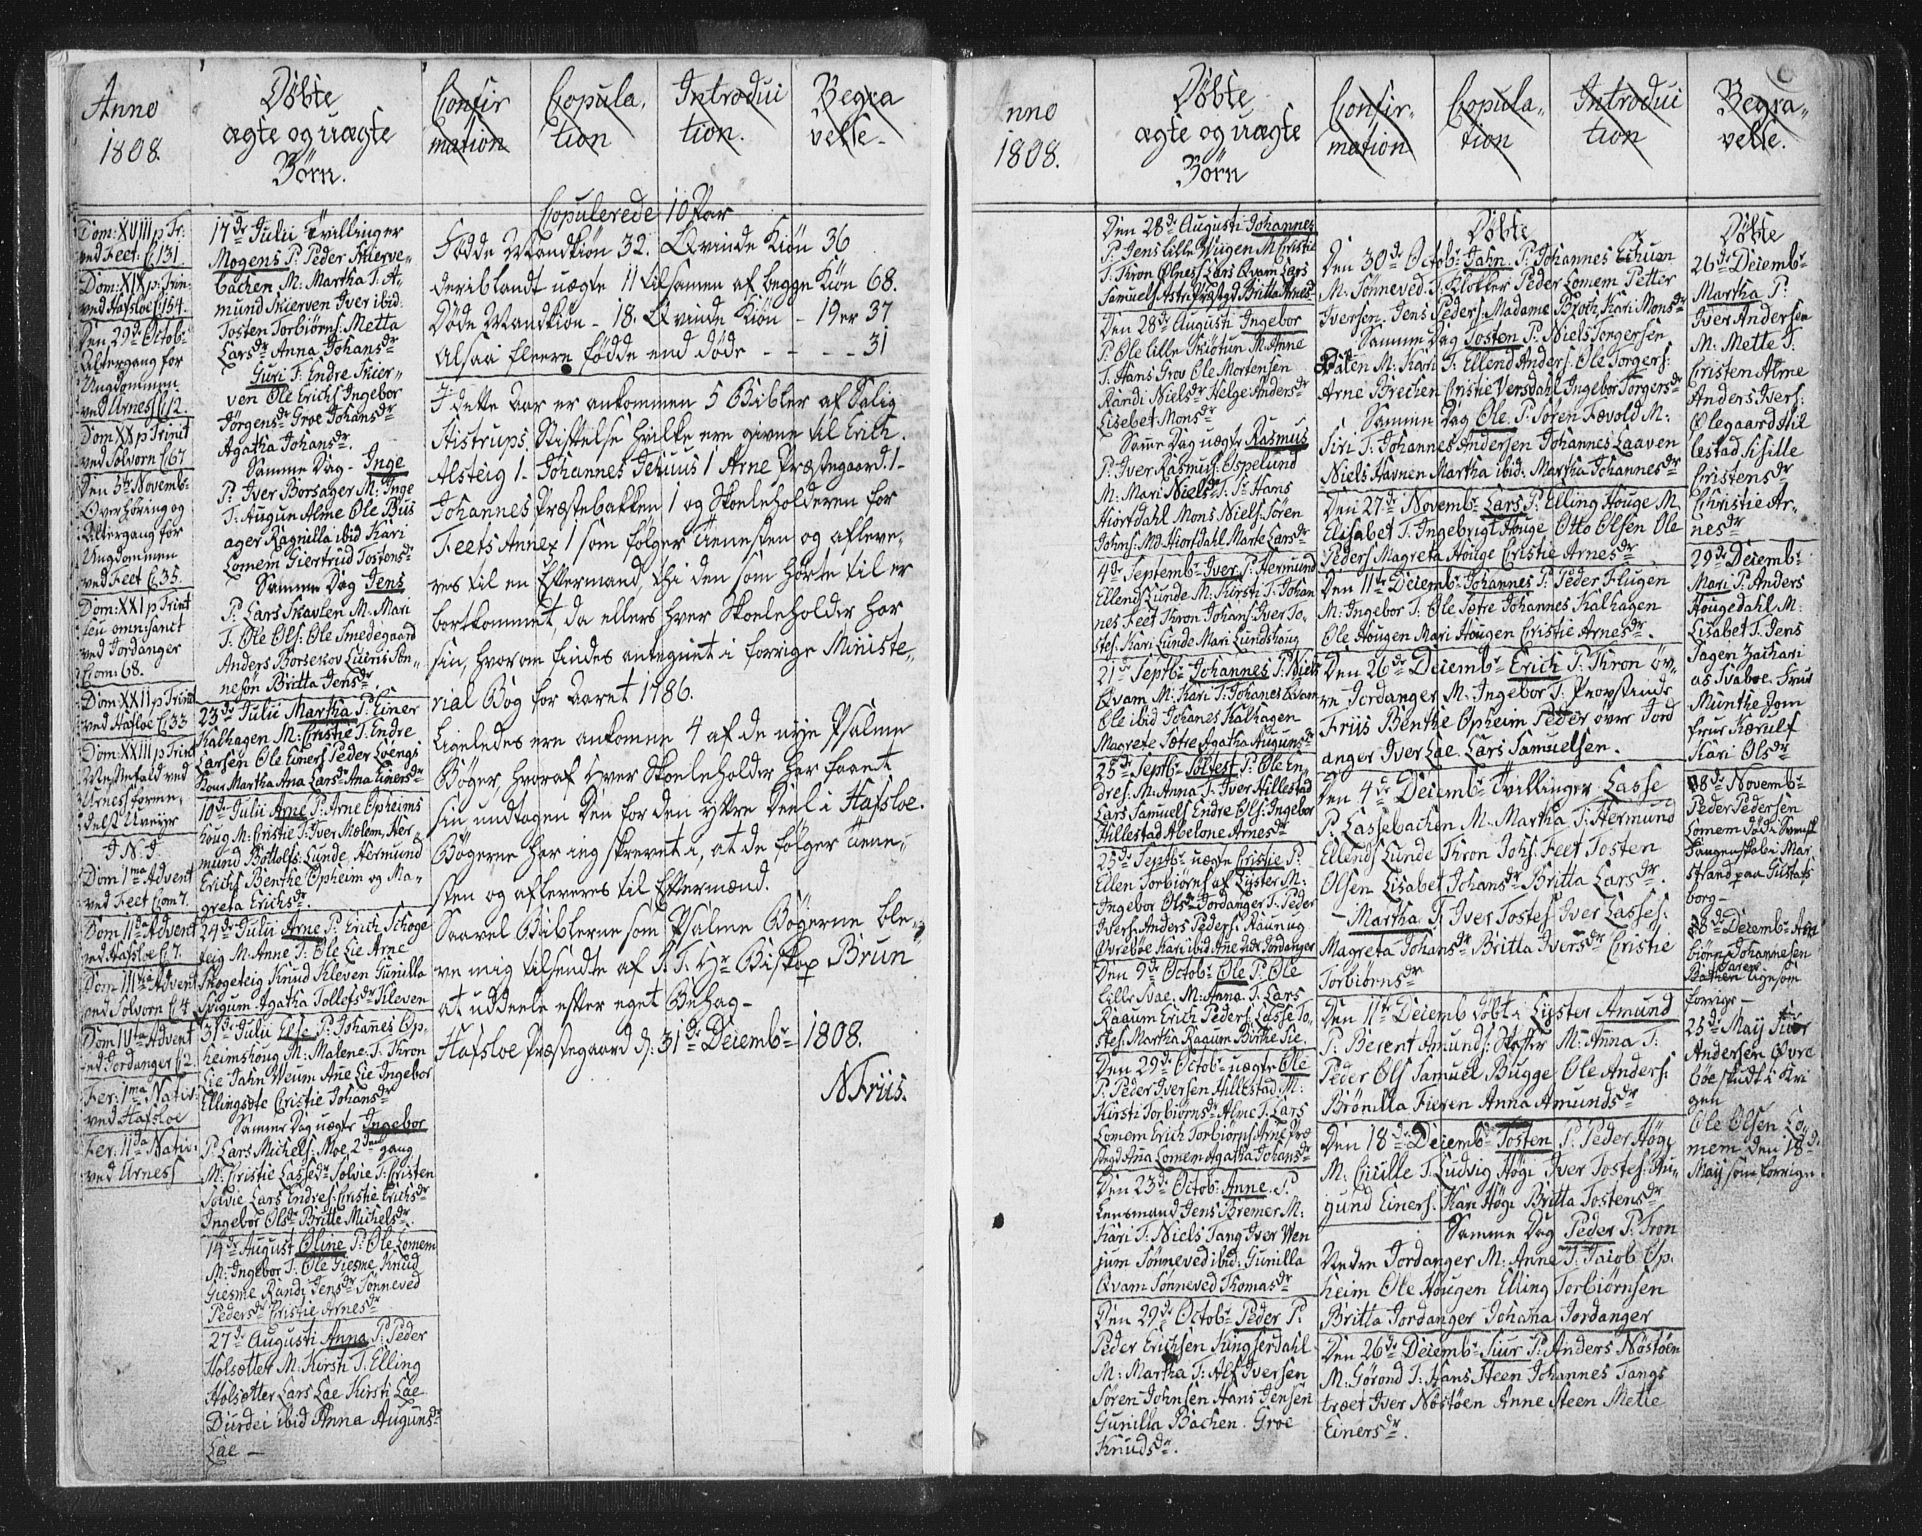 Anno
1808.
Døbte
ægte og uægte
Børn.
Confir
mation
Copula,
tion
Introdui
tion.
Begra
velse.
Dom: XVIII p Tr:
ved Feet. C. 131.
Dom: XIX p: Trin:
ved Hafsloe C. 154.
Den 29de Octobr
Altergang for
Ungdommen
ved Urnes C. 12.
Dom XX p Trinit
ved Solvorn C. 67
Den 5te Novembr
Overhøring og
Altergang for
Ungdommen
ved Feet C. 35.
Dom: XXI p Trint
seu omn: sanct
ved Jordanger
Com: 68.
Dom XXII p Trint
ved Hafsloe C. 33
Dom: XXIII p Trint
Messefald ved
Urnes forme,
delst Uveyr
J. N. J.
Dom 1ma Advent
ved Feet Com 7.
Dom 11da Advent
ved Hafsloe C. 7.
Dom 111tia Advent
ved Solvorn C. 4
Dom IVta Advent
ved Jordanger C. 2.
Fer: 1ma Nativ:
ved Hafsloe
Fer: 11da Nativ:
ved Urness
17de Julii Tvillinger
Mogens P: Peder Skierve„
bachen M: Martha T: A„
mund Skierven Iver ibid:
Tosten Torbiørns: Metta
Larsdr Anna Johansdr
Guri F: Endre Skier„
ven Ole Erichs Ingebor
Jørgensdr Groe Johansdr
Agatha Johansdr.
Samme Dag - Inge
P: Iver Borsager M: Inge
T: Augun Alme Ole Bus
ager Ragnilla ibid Kari
Lomem Giertrud Tostensdr
Samme Dag Jens
P: Lars Skavlen M: Mari
T: Ole Ols: Ole Smedegaard
Anders Borsekov
Britta Jensdr.
23de Julii Martha P: Einer
Kalhagen M: Christie T: Endre
Larsen Ole Einers Peder Loengs
Kone Martha Ana Larsdr Ana Einersdr
10de Julii Arne P: Arne Opheims
houg M: Cristie T: Iver Mælem, Her
mund Bottolfs: Lunde, Hermund
Erichs Benthe Opheim og Ma„
greta Erichsdr.
24de Julii Arne P: Erich Schoge
teig M: Anne T: Ole Lie Arne
Skogeteig Knud Kleven Gunilla
Agatha Tollefsdr Kleven
31de Julii P: Johanes Op„
heimshoug M: Malene T: Thron
Lie Jahn Weum Ane Lie Ingebor
Cristie Johansdr
Samme Dag uægte Ingebor
P: Lars Michels: Moe, 2den gang
M: Cristie Lassedr Solvie T: Cristen
Solvie Lars Endres: Cristie Erichsdr
Ingebor Olsdr Britte Michelsdr.
14de August Oline P: Ole Lomem
M: Ingebor T: Ole Giesme Knud
Giesme Randi Jensdr Sønneved
Pedersdr Cristie Arnesdr
27de Augusti Anna P: Peder
Holsetter M: Kirsti T: Elling
Holsetter Lars Lae Kirsti Lae
Durdei ibid Anna Augunsdr
Lae —
Copulerede 10 Par
Fødde Mandkiøn 32. Qvinde Kiøn 36
deriblandt uægte 11 tilsamen af begge Kiøn 68.
Døde Mandkiøn - 18. Qvinde Kiøn - 19 er 37
Alsaa fleere fødde end døde - - - - 31
I dette Aar er ankommen 5 Bibler af Salig
Histrups Stiftelse hvilke ere givne til Erich
Alsteig 1 - Johannes 1 Arne Præstegaard 1 -
Johannes Præstebakken 1 og Skoeleholderen for
Feets Annex 1 som følger Tienesten og afleve„
res til en Eftermand, thi den som hørte til er
bortkommet, da ellers hver Skoeleholder har
sin, hvorom findes antegnet i forrige Ministe„
rial Bog for Aaret 1786.
Ligeledes ere ankomne 4 af de nye Psalme
Bøger, hvoraf hver Skoeleholder har faaet
sin undtagen Den for den yttre Deel i Hafsloe.
Bøgerne har jeg skrevet i, at de følger Tiene„
sten og afleveres til Eftermænd.
Saavel Biblerne som Psalme Bøgerne ble„
ve mig tilsendte af S. T. Hr Biskop Brun
at uddeele efter eget Behag -
Hafsloe Præstegaard d: 31de Decembr 1808.
N Friis.
nno
1808.
Døbte
ægte og uægte
Børn
Confir-
mation
Copula„
tion
Introdui
tion
Begra-
velse.
Den 28de Augusti Johannes
P: Jens Lille Wiigen M: Cristie
T: Thron Ølness Lars Qvam Lars
Samuels Britta Arnesdr
Den 28de Augusti Ingebor
P: Ole Lille Skiøtun M: Anne
T: Hans Grov Ole Mortensen
Randi Nielsdr Helge Andersdr
Lisebet Monsdr
Samme Dag uægte Rasmus
P: Iver Rasmus: Espelund
M: Mari Nielsdr T: S: Hans
Hiortdahl Mons Niels: Søren
Johns: Md Hiortdahl Marte Larsdr
4de Septembr Iver P: Hermund
Ellends Lunde M: Kirsti T: Johan
nes Feet Thron Johans: Iver To„
stes: Kari Lunde Mari Lundshaug
21de Septbr Johannes P: Niels
Qvam M: Kari T: Johanes Qvam
Ole ibid Johanes Kalhagen
Magrete Sætre Agatha Augunsdr
25de Septbr Solfest P: Ole En„
dres: M: Anna T: Iver Hillestad
Lars Samuels Endre Ols: Ingebor
Hillestad Abelone Arnesdr
25de Septbr uægte Cristie P:
Ellen Torbiørns af Lyster M:
Ingebor Olsdr Jordanger T: Peder
Ivers: Anders Peders:
Øvrebøe Kari ibid: Ane Jordanger
Den 9de Octobr Ole P: Ole
Lille Svae. M: Anna T: Lars
Raaum Erich Peders: Lasse To„
stes: Martha Raaum Birthe Lie
Den 29de Octobr uægte Ole
P: Peder Iversen Hillestad M:
Kirsti Torbiørnsdr Alme T: Lars
Lomem Erich Torbiørns: Arne Præ
stegd Ana Lomem Agatha Johansdr
Den 23de Octobr Anne P:
Lensmand Jens Bremer M:
Kari T: Niels Tang Iver Wen
jum Sønneved ibid: Gunilla
Qvam Sønneved Thomasdr
Den 29de Octobr Peder P:
Peder Erichsen Kungserdahl
M: Martha T: Alf Iversen
Søren Johnsen Hans Jensen
Gunilla Bachen. Groe
Knudsdr.
Døbte
Den 30de Octobr Jahn P: Johannes Eikum
M: Sønneved T: Klokker Peder Lomem Petter
Iversen Jens Peders: Madame Broth Kari Monsdr
Samme Dag Tosten P: Niels Torgersen
Dalen M: Kari T: Ellend Anders: Ole Torgers:
Arne Brechen Cristie Versdahl Ingebor Torgersdr
Samme Dag Ole P: Søren Fævold M:
Siri T: Johannes Andersen Johannes Laaven
Niels Havnen Martha ibid. Martha Johannesdr
Den 27de Novembr Lars P: Elling Houge M
Elisabet T: Ingebrigt Houge Otto Olsen Ole
Peders Magreta Houge Cristie Arnesdr
Den 11te Decembr Johannes P: Peder Flugen
M: Ingebor T: Ole Sætre Johannes Kalhagen
Ole Hougen Mari Hougen Cristie Arnesdr.
Den 26de Decembr Erich P: Thron øv„
re Jordanger M: Ingebor T: Provstinde
Friis Benthe Opheim Peder øvre Jord
anger Iver Lae Lars Samuelsen.
Den 4de Decembr Tvillinger Lasse
P: Lassebachen M: Martha T: Hermund
Ellends Lunde Thron Johs: Feet Tosten
Olsen Lisabet Johansdr Britta Larsdr.
- Martha T: Iver Tostes: Iver Lasses:
Magreta Johansdr Britta Iversdr Cristie
Torbiørnsdr
Den 11te Decemb døbt i Lyster Amund
P: Berent Amunds: M: Anna T:
Peder Ols Samuel Bugge Ole Anders:
Brønilla Fieren Anna Amundsdr
Den 18de Decembr Tosten P: Peder Høgi
M: Cicille T: Ludvig Høgi Iver Tostes: Au„
gund Einers: Kari Høgi Britta Tostensdr
Samme Dag Peder P: Tron
Nedre Jordanger M: Anne T: Jacob Op„
heim Ole Hougen Elling Torbiørnsen
Britta Jordanger Johana Jordanger
Den 26de Decembr Siur P: Anders Nøstøen
M: Gørond T: Hans Steen Johannes Tangs
træet Iver Nøstøen Anne Steen Mette
Einersdr.
Døbte
26de Decembr
Martha P:
Iver Andersen
M: Mette T:
Cristen Alme
Anders Ivers:
Ølegaard Hil
lestad Sisille
Cristensdr
Christie Ar„
nesdr
29de Decembr
Mari P: Anders
Hougedahl M:
Lisabet T: Jens
Fagen Zachari
as Svaboe. Frue
Munthe Jom
frue Kærulf
Kari Olsdr
08de Novembr
Peder Pedersen
Lomem døde i Svensk
Fangenskab i Mar
strand paa Gustafs
borg -
28de Decembr Am
biørn Johannesen
Bachen ligesom
forrige -
25de May Siur
Andersen Øvre
bøe skudt i Kri
gen
Ole Olsen Lo„
mem den 18de
May som forrige